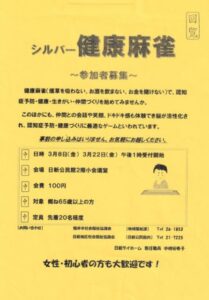 回覧
シルバー 健康麻雀
~参加者募集~
健康麻雀(煙草を吸わない、お酒を飲まない、お金を賭けない)で、認知
症予防・健康・生きがい・仲間づくりを始めてみませんか。
このほかにも、仲間との会話や笑顔、ドキドキ感も体験でき脳が活性化さ
れ、認知症予防・健康づくりに最適なゲームといわれています。
事前の申し込みはいりません。お気軽にお越しください。
日時 3月8日(金) 3月22日(金) 午後1時受付開始
会場 日新公民館2階小会議室
会費 100円
対象 概ね65歳以上の方
定員 先着20名程度
女性・初心者の方も大歓迎です!